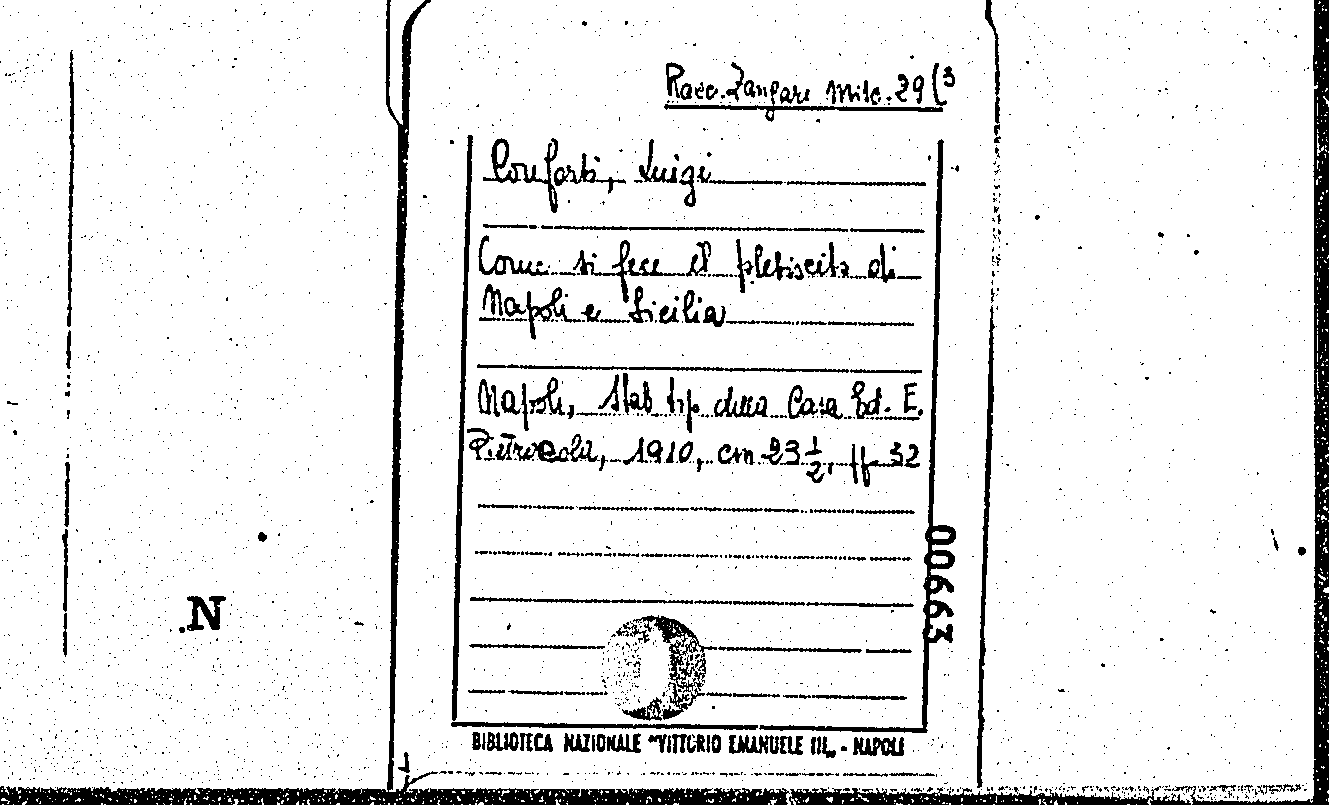 Racc. Zangari Misc. 29 (3
Conforti, Luigi
Come si fece il plebiscito di
Napoli e Sicilia
Napoli, Stab tip. della Casa Ed. E.
Pietrocola, 1910, cm 23 1/2, pp 32
00663
.N
BIBLIOTECA NAZIONALE "VITTORIO EMANUELE III„ - NAPOLI